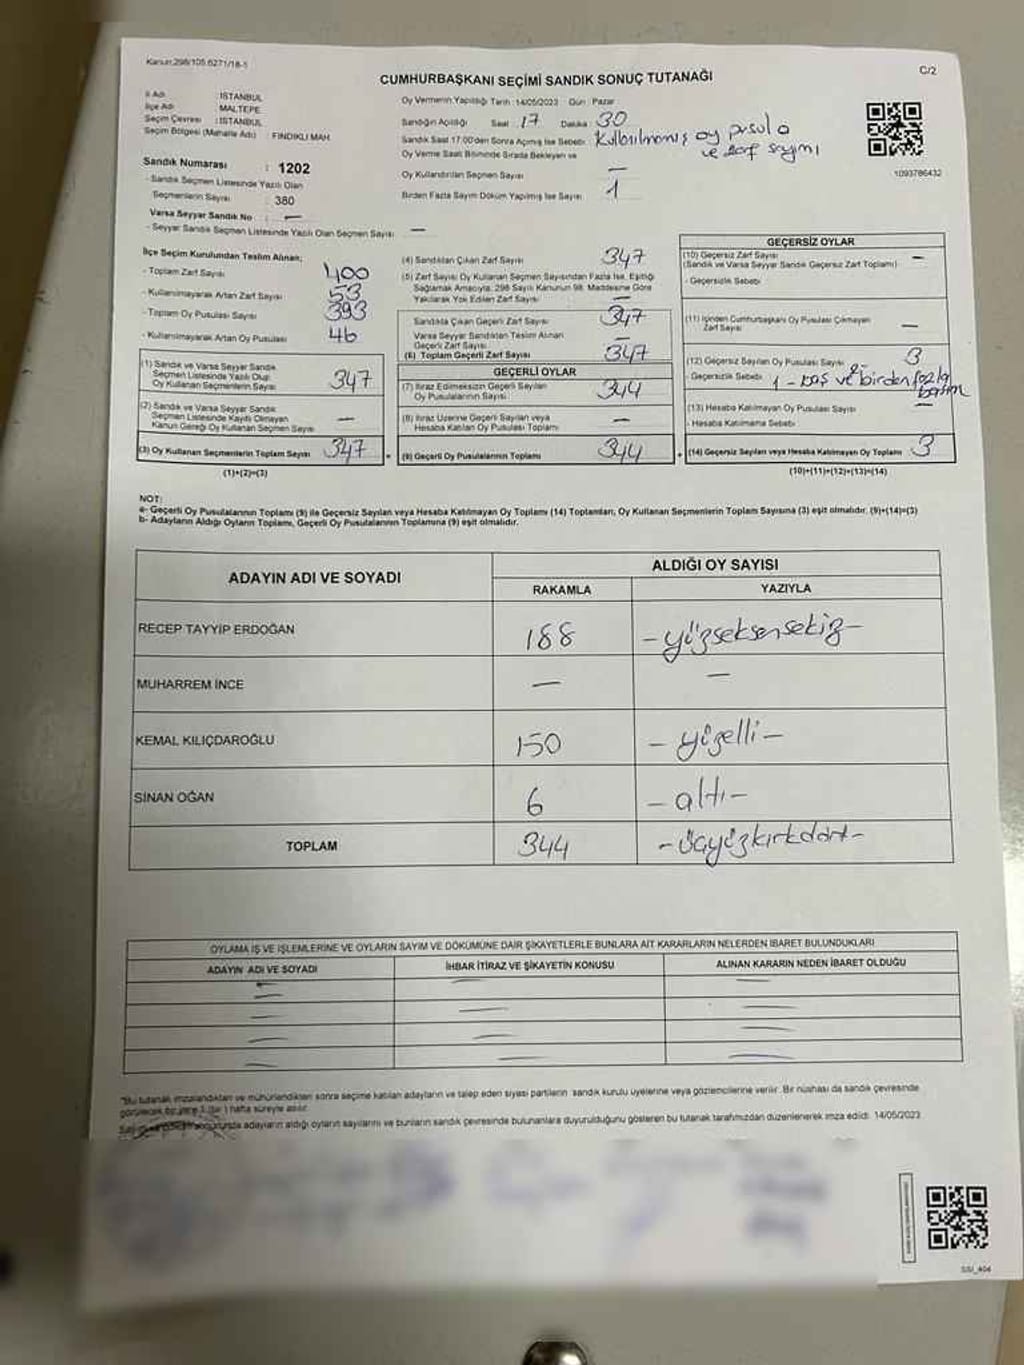 Kanun:298/105.6271/18-1
C/2
CUMHURBAŞKANI SEÇİMİ SANDIK SONUÇ TUTANAĞI
İl Adı : İSTANBUL
İlçe Adı : MALTEPE
Seçim Çevresi : İSTANBUL
Seçim Bölgesi (Mahalle Adı) : FINDIKLI MAH.
Sandık Numarası : 1202
- Sandık Seçmen Listesinde Yazılı Olan
Seçmenlerin Sayısı : 380
Varsa Seyyar Sandık No : —
- Seyyar Sandık Seçmen Listesinde Yazılı Olan Seçmen Sayısı —
Oy Vermenin Yapıldığı Tarih :14/05/2023 Gün : Pazar
Sandığın Açıldığı Saat : 17 Dakika : 30
Sandık Saat 17:00'den Sonra Açılmış İse Sebebi: Kullanılmamış oy pusula
ve zarf sayımı
Oy Verme Saati Bitiminde Sırada Bekleyen ve
Oy Kullandırılan Seçmen Sayısı —
Birden Fazla Sayım Döküm Yapılmış İse Sayısı 1
1093786432
İlçe Seçim Kurulundan Teslim Alınan;
- Toplam Zarf Sayısı 400
- Kullanılmayarak Artan Zarf Sayısı 53
- Toplam Oy Pusulası Sayısı 393
- Kullanılmayarak Artan Oy Pusulası 46
(1) Sandık ve Varsa Seyyar Sandık
Seçmen Listesinde Yazılı Olup
Oy Kullanan Seçmenlerin Sayısı 347
(2) Sandık ve Varsa Seyyar Sandık
Seçmen Listesinde Kayıtlı Olmayan
Kanun Gereği Oy Kullanan Seçmen Sayısı —
(3) Oy Kullanan Seçmenlerin Toplam Sayısı 347
(1)+(2)=(3)
(4) Sandıktan Çıkan Zarf Sayısı 347
(5) Zarf Sayısı Oy Kullanan Seçmen Sayısından Fazla İse, Eşitliği
Sağlamak Amacıyla, 298 Sayılı Kanunun 98. Maddesine Göre
Yakılarak Yok Edilen Zarf Sayısı —
Sandıkta Çıkan Geçerli Zarf Sayısı 347
Varsa Seyyar Sandıktan Teslim Alınan
Geçerli Zarf Sayısı —
(6) Toplam Geçerli Zarf Sayısı 347
GEÇERLİ OYLAR
(7) İtiraz Edilmeksizin Geçerli Sayılan
Oy Pusulalarının Sayısı 344
(8) İtiraz Üzerine Geçerli Sayılan veya
Hesaba Katılan Oy Pusulası Toplamı —
(9) Geçerli Oy Pusulalarının Toplamı 344
GEÇERSİZ OYLAR
(10) Geçersiz Zarf Sayısı —
(Sandık ve Varsa Seyyar Sandık Geçersiz Zarf Toplamı)
- Geçersizlik Sebebi:
(11) İçinden Cumhurbaşkanı Oy Pusulası Çıkmayan
Zarf Sayısı —
(12) Geçersiz Sayılan Oy Pusulası Sayısı 3
- Geçersizlik Sebebi: 1-boş ve birden fazla
basım
(13) Hesaba Katılmayan Oy Pusulası Sayısı —
- Hesaba Katılmama Sebebi:
(14) Geçersiz Sayılan veya Hesaba Katılmayan Oy Toplamı 3
(10)+(11)+(12)+(13)=(14)
NOT:
a- Geçerli Oy Pusulalarının Toplamı (9) ile Geçersiz Sayılan veya Hesaba Katılmayan Oy Toplamı (14) Toplamları, Oy Kullanan Seçmenlerin Toplam Sayısına (3) eşit olmalıdır. (9)+(14)=(3)
b- Adayların Aldığı Oyların Toplamı, Geçerli Oy Pusulalarının Toplamına (9) eşit olmalıdır.
ADAYIN ADI VE SOYADI
ALDIĞI OY SAYISI
RAKAMLA YAZIYLA
RECEP TAYYİP ERDOĞAN 188 -yüzseksensekiz-
MUHARREM İNCE — —
KEMAL KILIÇDAROĞLU 150 -yüzelli-
SİNAN OĞAN 6 -altı-
TOPLAM 344 -üçyüzkırkdört-
OYLAMA İŞ VE İŞLEMLERİNE VE OYLARIN SAYIM VE DÖKÜMÜNE DAİR ŞİKAYETLERLE BUNLARA AİT KARARLARIN NELERDEN İBARET BULUNDUKLARI
ADAYIN ADI VE SOYADI İHBAR İTİRAZ VE ŞİKAYETİN KONUSU ALINAN KARARIN NEDEN İBARET OLDUĞU
— — —
— — —
— — —
— — —
*Bu tutanak imzalandıktan ve mühürlendikten sonra seçime katılan adayların ve talep eden siyasi partilerin sandık kurulu üyelerine veya gözlemcilerine verilir. Bir nüshası da sandık çevresinde
görülecek bir yere 1 (bir) hafta süreyle asılır.
adayların aldığı oyların sayılarını ve bunların sandık çevresinde bulunanlara duyurulduğunu gösteren bu tutanak tarafımızdan düzenlenerek imza edildi. 14/05/2023
SSI_404